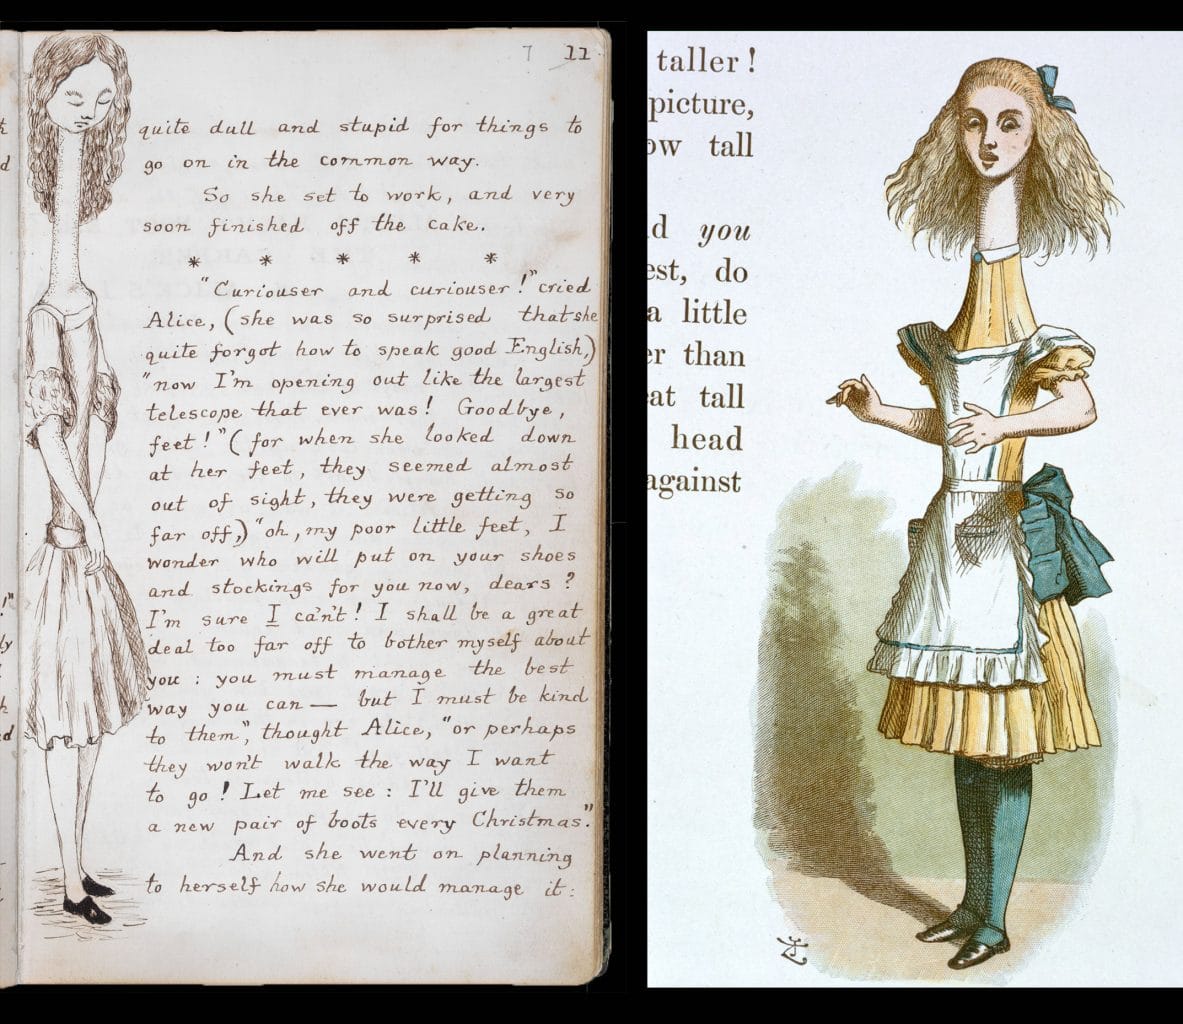 7 11
quite dull and stupid for things to
go on in the common way.
So she set to work, and very
soon finished off the cake.
* * * * *
"Curiouser and curiouser!" cried
Alice, (she was so surprised that she
quite forgot how to speak good English,)
"now I'm opening out like the largest
telescope that ever was! Goodbye,
feet!" (for when she looked down
at her feet, they seemed almost
out of sight, they were getting so
far off,) "oh, my poor little feet, I
wonder who will put on your shoes
and stockings for you now, dears?
I'm sure I can't! I shall be a great
deal too far off to bother myself about
you : you must manage the best
way you can — but I must be kind
to them", thought Alice, "or perhaps
they won't walk the way I want
to go! Let me see : I'll give them
a new pair of boots every Christmas."
And she went on planning
to herself how she would manage it:
taller!
picture,
ow tall
d you
est, do
a little
er than
eat tall
head
against